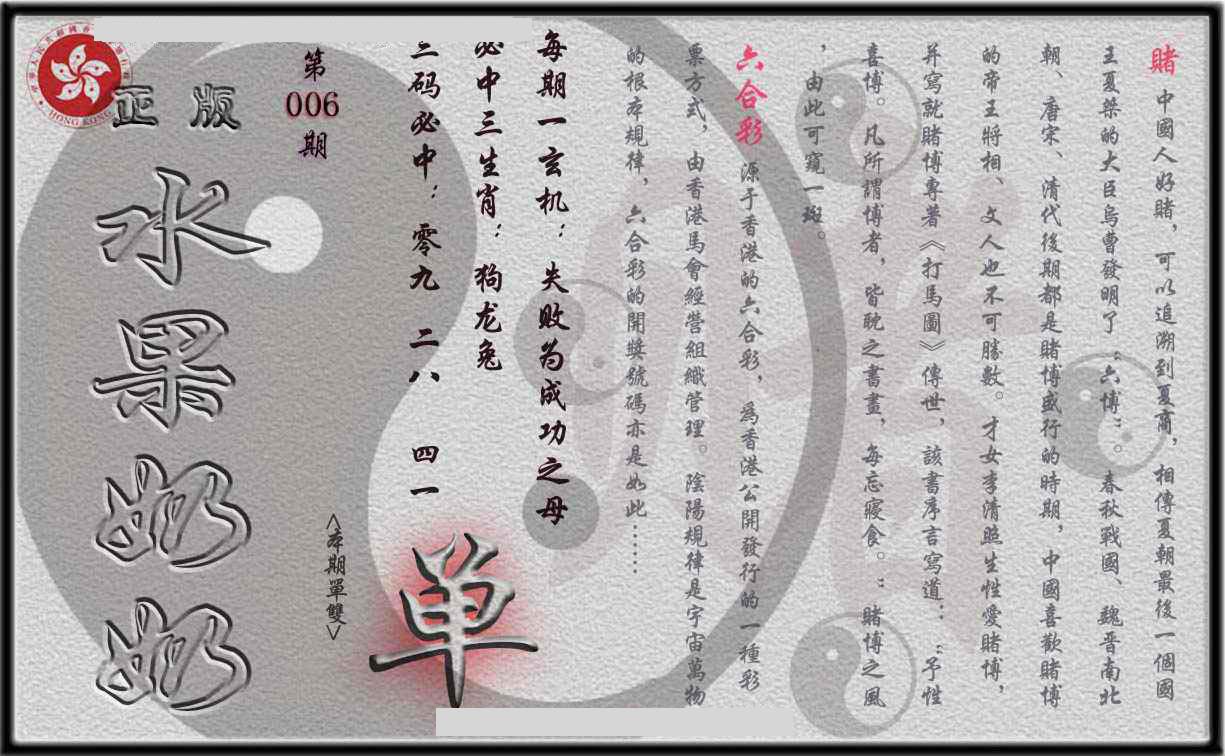 賭 中國人好賭，可以追溯到夏商，相傳夏朝最後一個國
王夏桀的大臣烏曹發明了“六博”。春秋戰國、魏晋南北
朝、唐宋、清代後期都是賭博盛行的時期，中國喜歡賭博
的帝王將相、文人也不可勝數。才女李清照生性愛賭博，
并寫就賭博專著《打馬圖》傳世，該書序言寫道：“予性
喜博。凡所謂博者，皆耽之書畫，每忘寢食。”賭博之風
，由此可窺一斑。
六合彩 源于香港的六合彩，為香港公開發行的一種彩
票方式，由香港馬會經營組織管理。陰陽規律是宇宙萬物
的根本規律，六合彩的開獎號碼亦是如此……
每期一玄机：失败为成功之母
必中三生肖：狗龙兔
三码必中：零九 二八 四一
单
<本期單雙>
第
006
期
正版
水果奶奶
HONG KONG